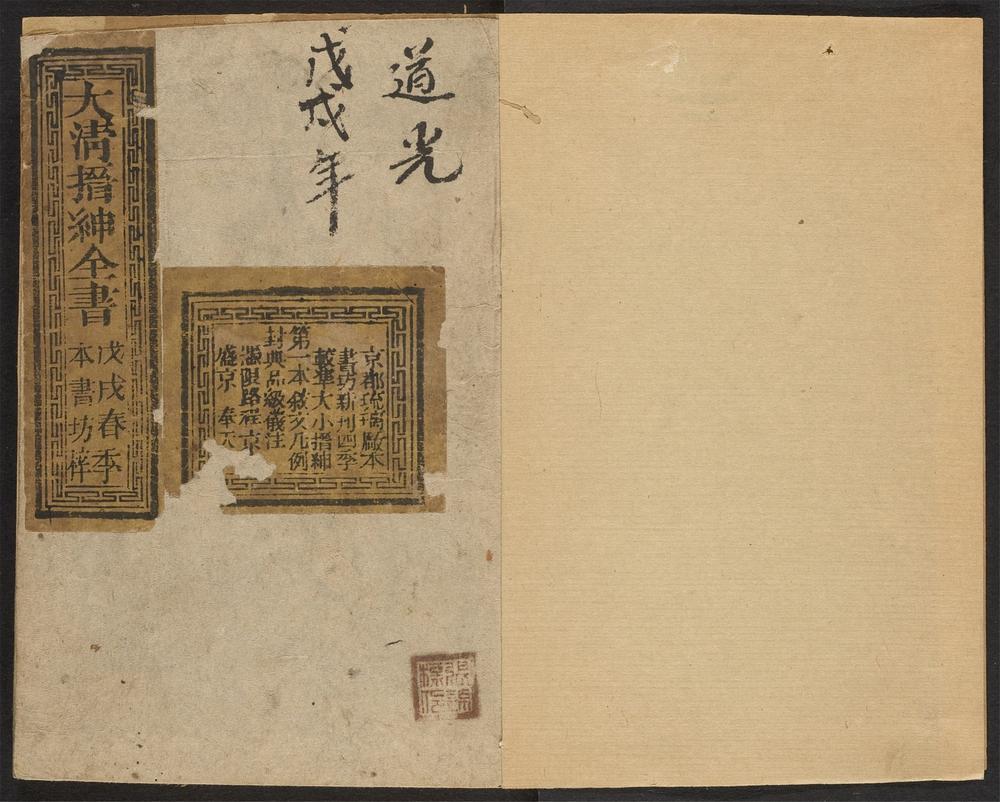 道光
戊戌年
京都琉璃厰本
書坊新刊四季
較準大小搢紳
第一本叙文凡例
封典品級儀注
憑限路程京
盛京 奉天
大清搢紳全書
戊戌春季
本書坊梓